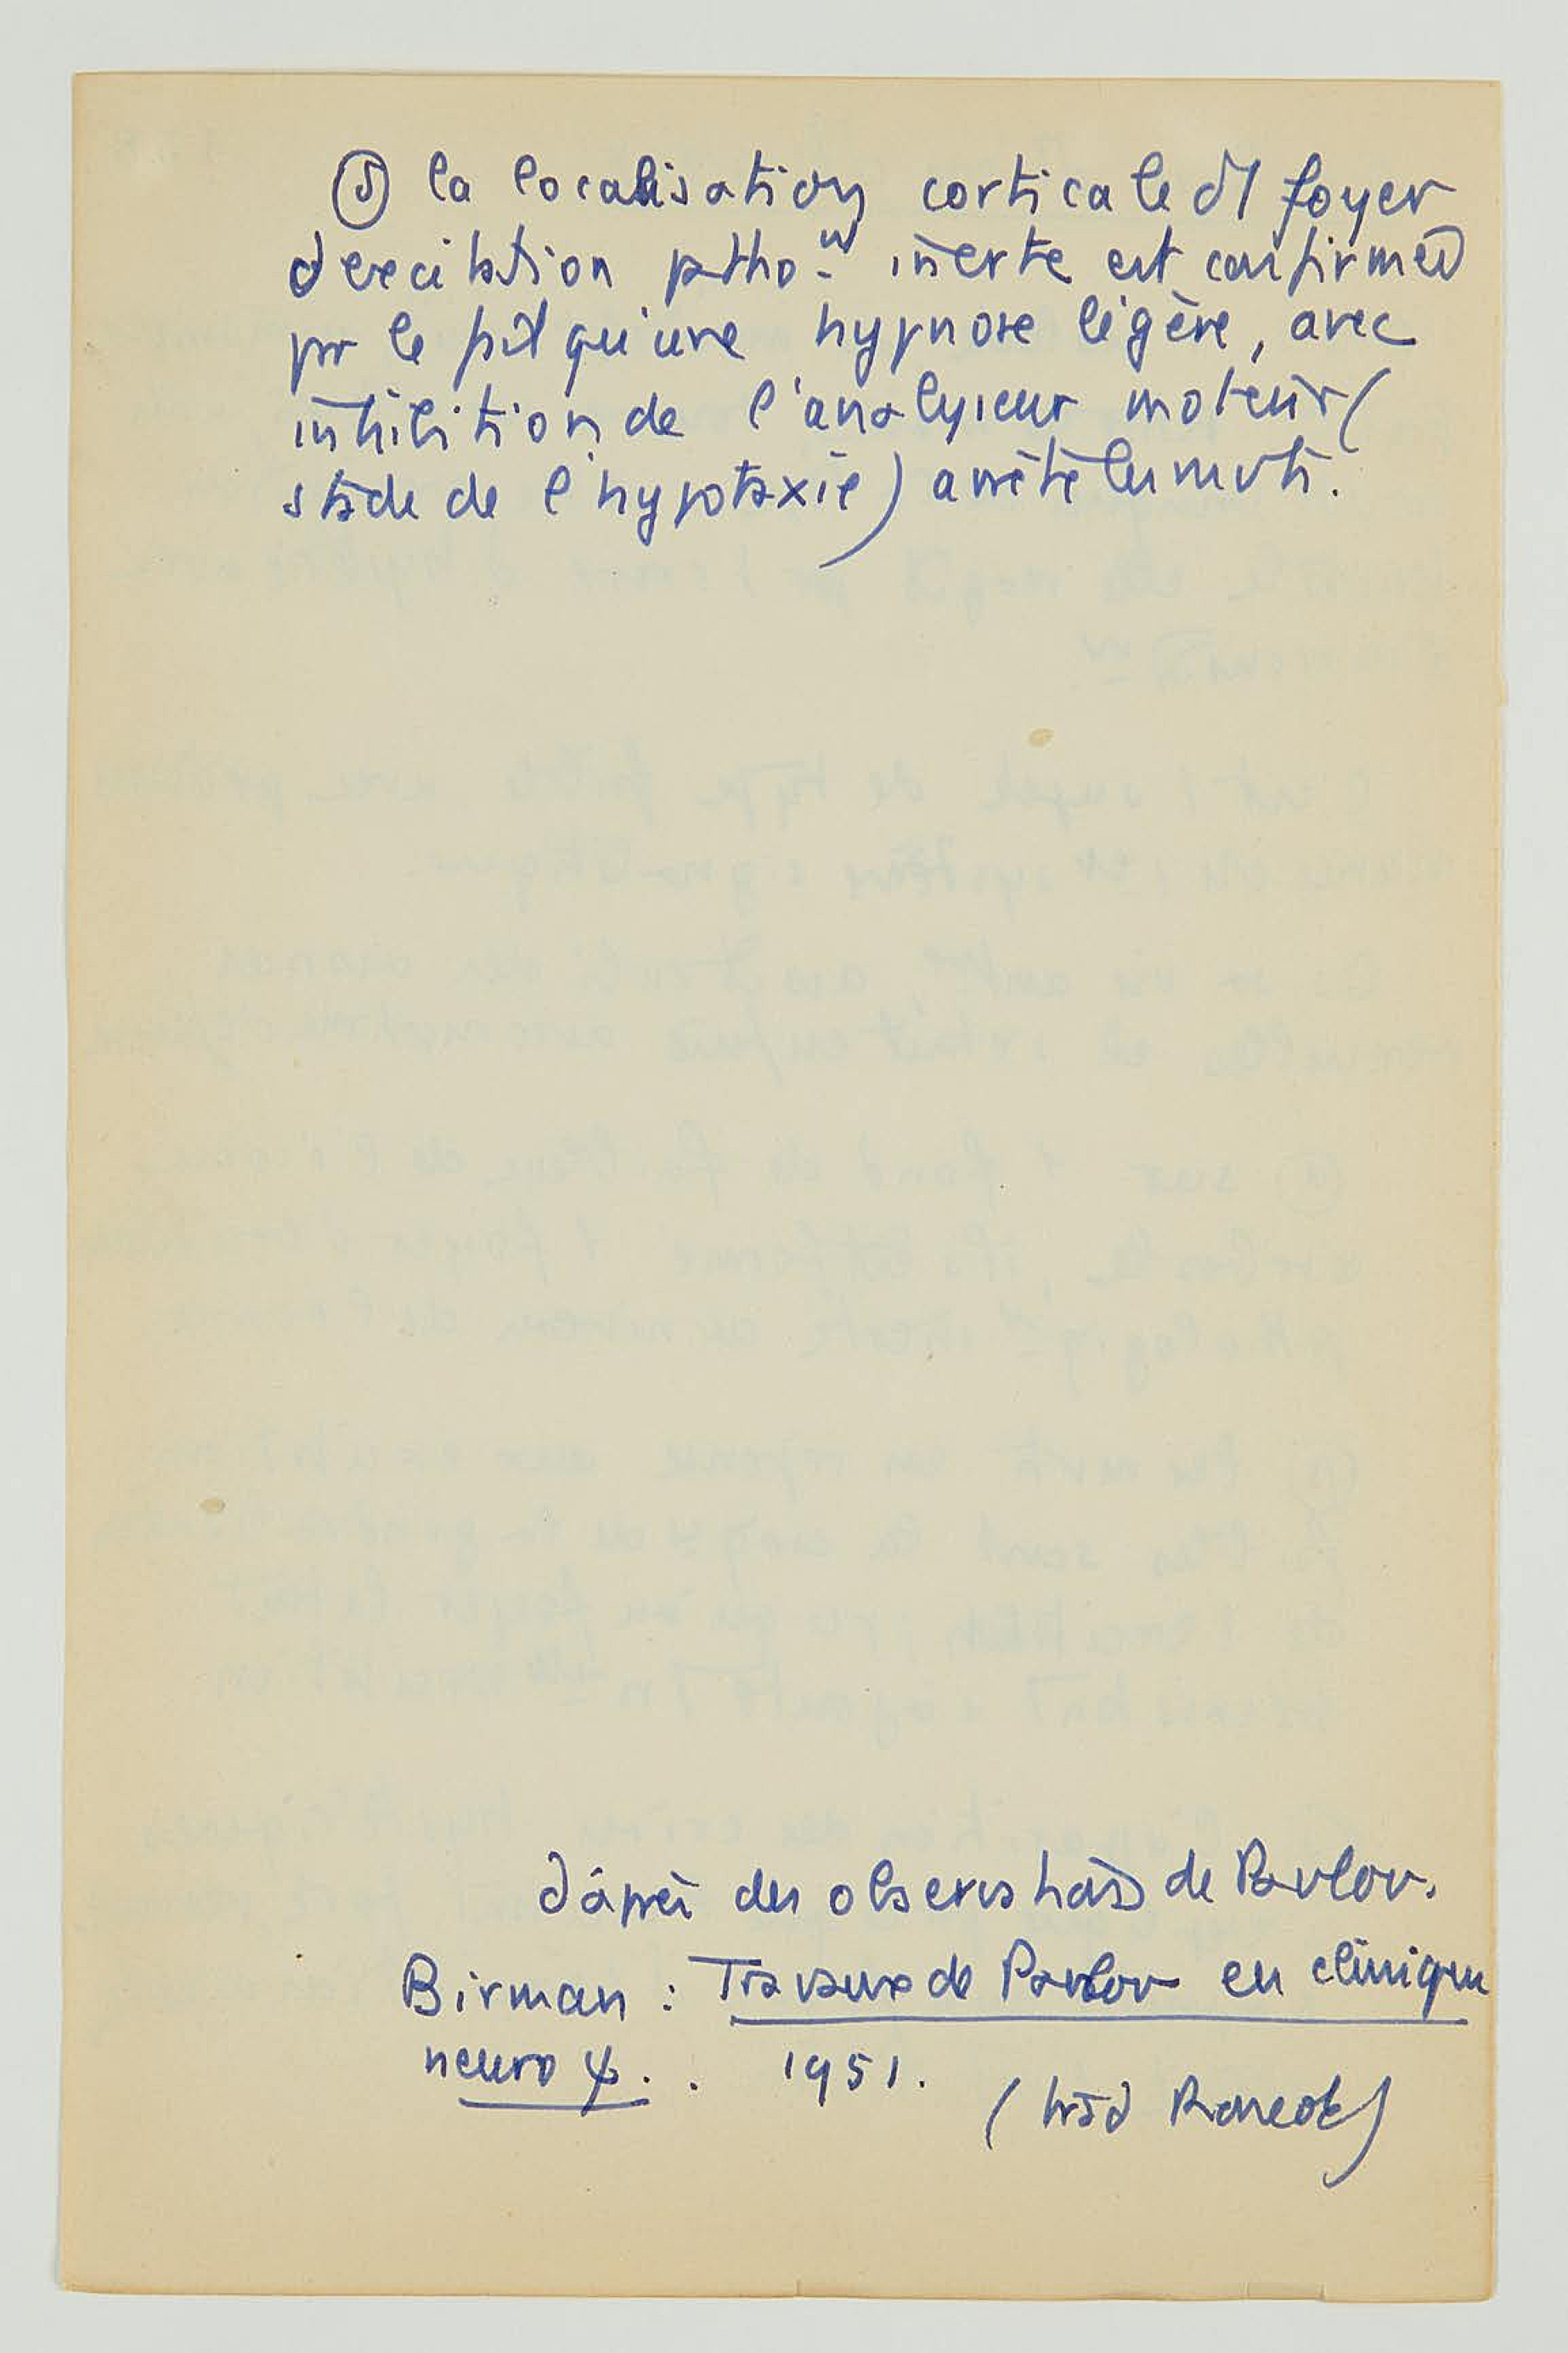 ⑤ la localisation corticale d'1 foyer
d'excitation patho. inerte est confirmée
par le fait qu'une hypnose légère, avec
inhibition de l'analyseur moteur (
stade de l'hypotaxie) arrête les mvts.
d'après des observations de Pavlov.
Birman : Travaux de Pavlov en clinique
neuro ψ. . 1951.
(trad